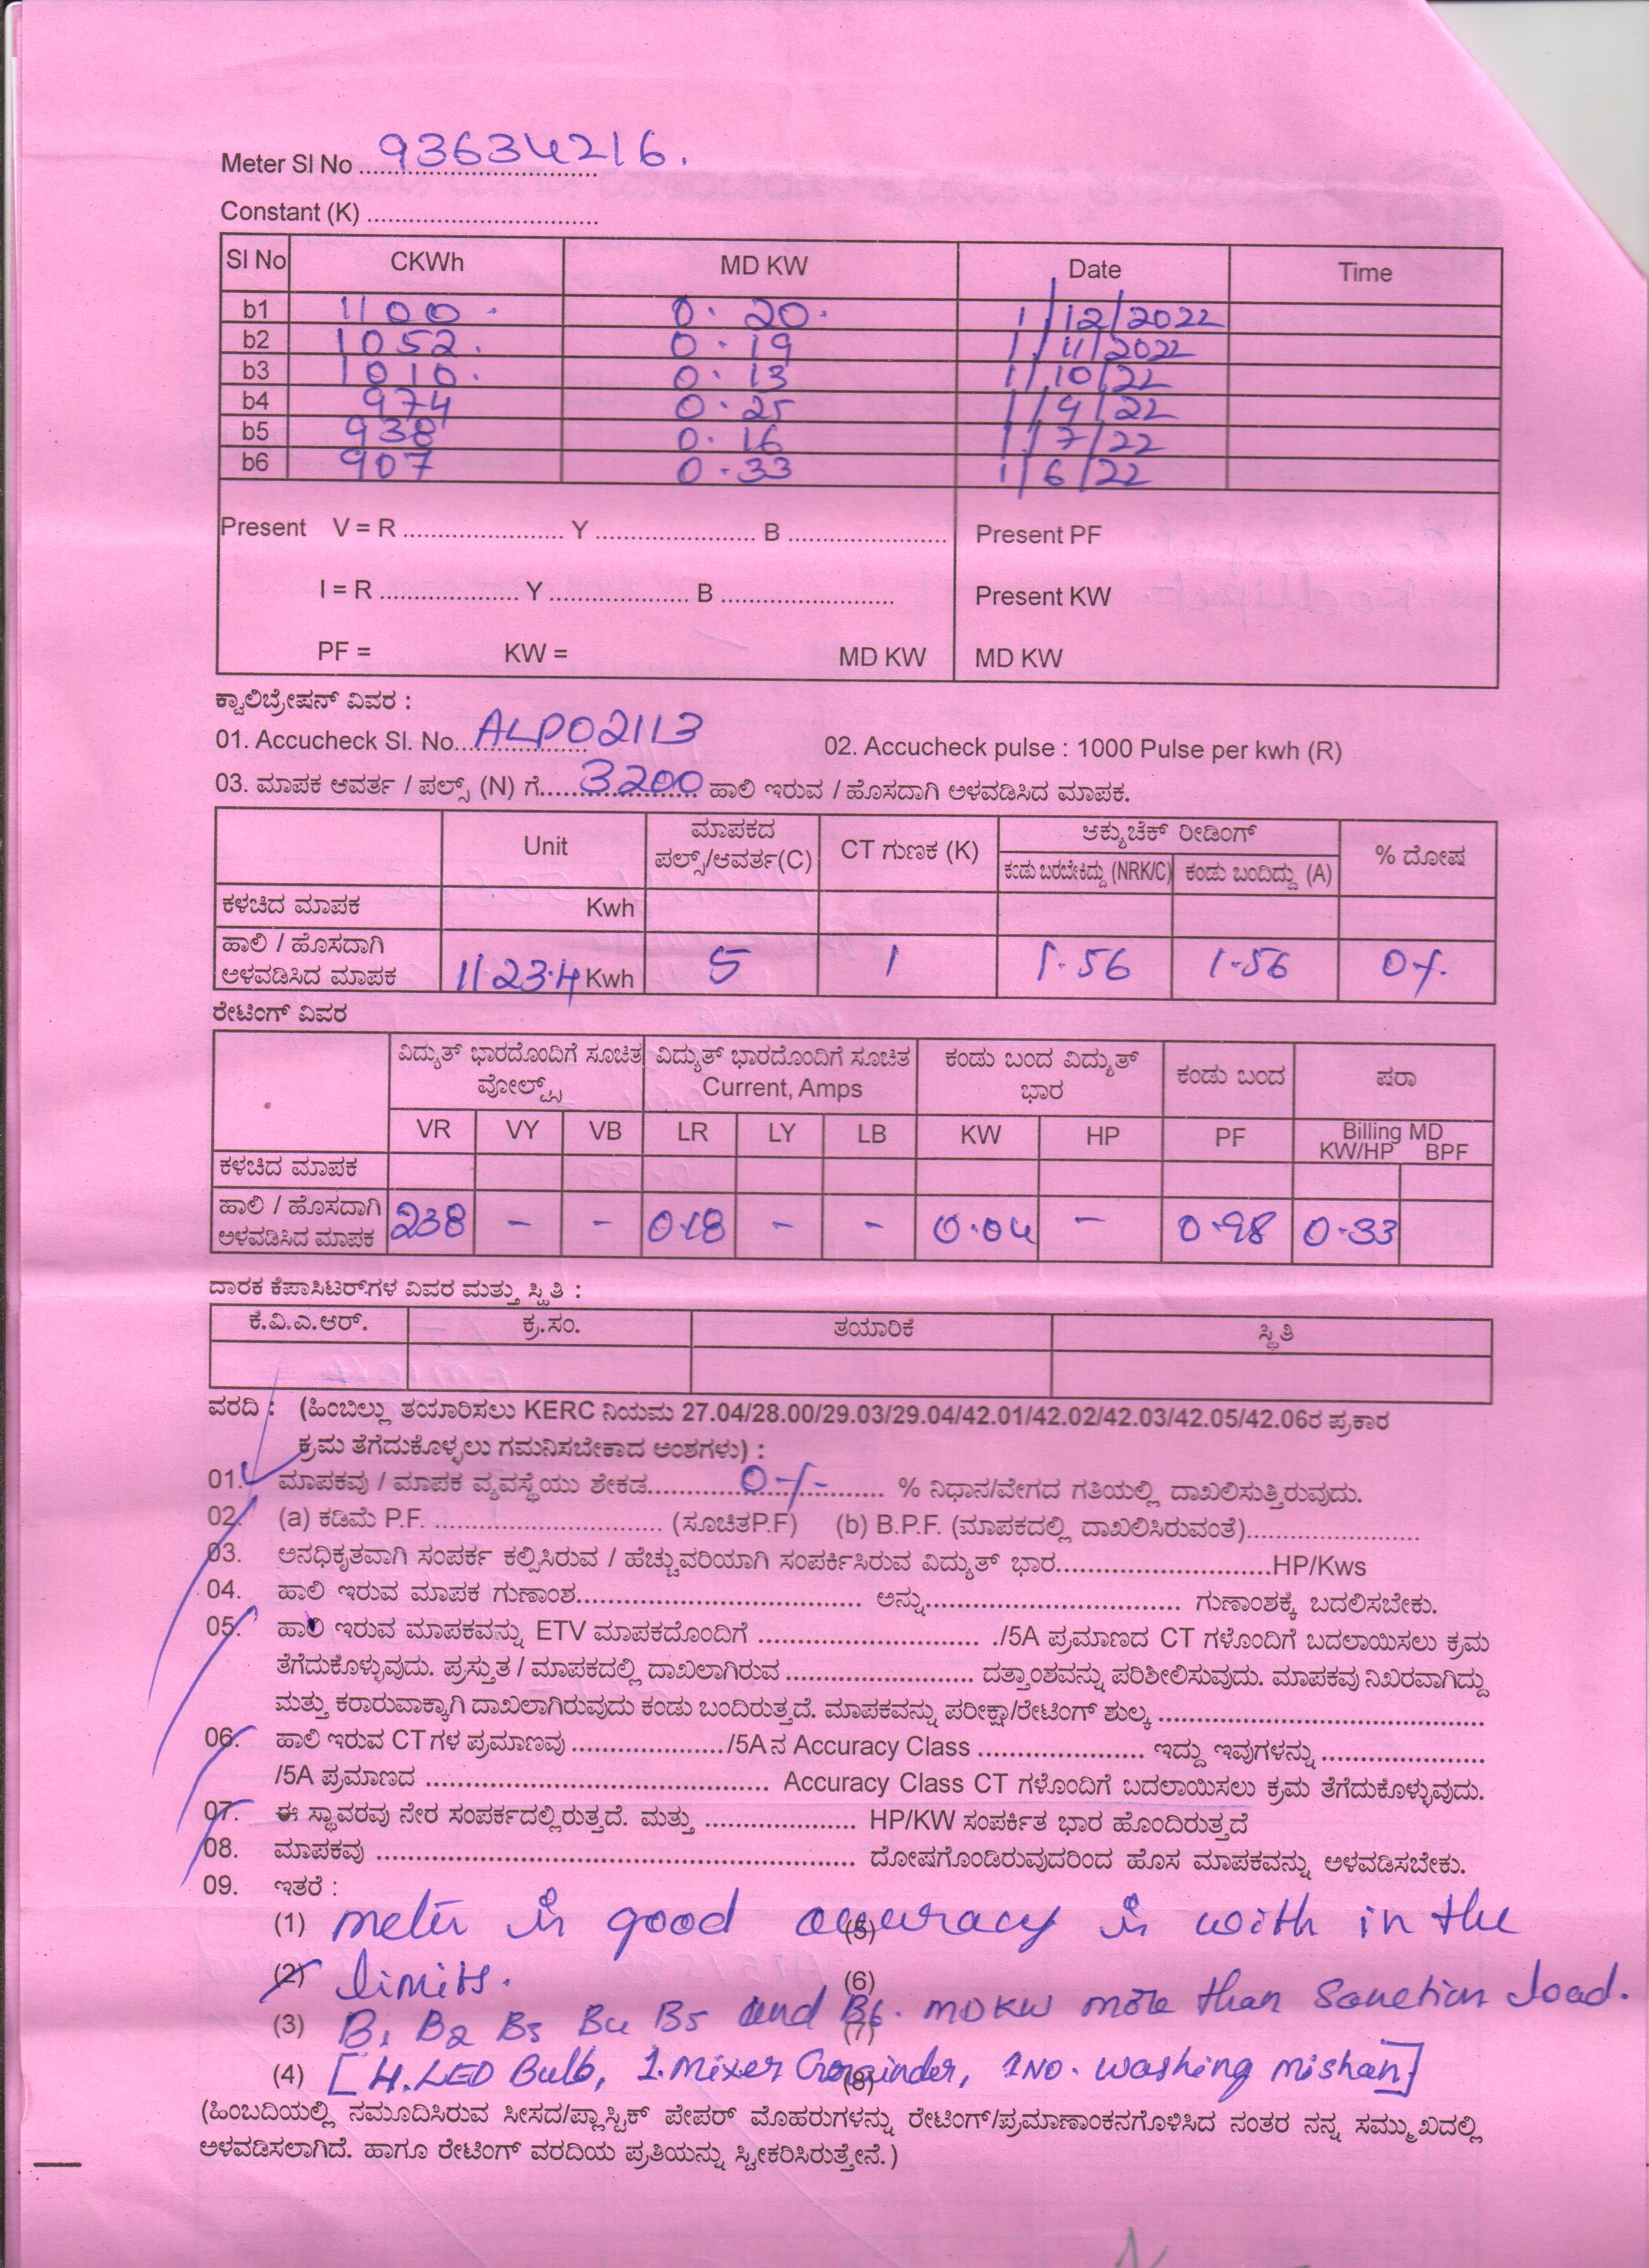 Meter Sl No 93634216.
Constant (K) ..................................
Sl No CKWh MD KW Date Time
b1 1100. 0.20. 1/12/2022
b2 1052. 0.19 1/11/2022
b3 1010. 0.13 1/10/22
b4 974 0.25 1/9/22
b5 938 0.16 1/7/22
b6 907 0.33 1/6/22
Present V = R ........................ Y ........................ B ........................ Present PF
I = R ..................... Y ..................... B .......................... Present KW
PF = KW = MD KW MD KW
ಕ್ಯಾಲಿಬ್ರೇಷನ್ ವಿವರ :
01. Accucheck Sl. No. ALP02113 02. Accucheck pulse : 1000 Pulse per kwh (R)
03. ಮಾಪಕ ಆವರ್ತ / ಪಲ್ಸ್ (N) ಗೆ..... 3200 ಹಾಲಿ ಇರುವ / ಹೊಸದಾಗಿ ಅಳವಡಿಸಿದ ಮಾಪಕ.
Unit ಮಾಪಕದ ಪಲ್ಸ್/ಆವರ್ತ(C) CT ಗುಣಕ (K) ಅಕ್ಯುಚೆಕ್ ರೀಡಿಂಗ್ % ದೋಷ
ಕಂಡು ಬರಬೇಕಿದ್ದು (NRK/C) ಕಂಡು ಬಂದಿದ್ದು (A)
ಕಳಚಿದ ಮಾಪಕ Kwh
ಹಾಲಿ / ಹೊಸದಾಗಿ
ಅಳವಡಿಸಿದ ಮಾಪಕ 1123.4 Kwh 5 1 1.56 1.56 0%.
ರೇಟಿಂಗ್ ವಿವರ
ವಿದ್ಯುತ್ ಭಾರದೊಂದಿಗೆ ಸೂಚಿತ ವೋಲ್ಟ್ಸ್ ವಿದ್ಯುತ್ ಭಾರದೊಂದಿಗೆ ಸೂಚಿತ Current, Amps ಕಂಡು ಬಂದ ವಿದ್ಯುತ್ ಭಾರ ಕಂಡು ಬಂದ ಷರಾ
VR VY VB LR LY LB KW HP PF Billing MD
KW/HP BPF
ಕಳಚಿದ ಮಾಪಕ
ಹಾಲಿ / ಹೊಸದಾಗಿ
ಅಳವಡಿಸಿದ ಮಾಪಕ 238 - - 0.18 - - 0.04 - 0.98 0.33
ದಾರಕ ಕೆಪಾಸಿಟರ್‌ಗಳ ವಿವರ ಮತ್ತು ಸ್ಥಿತಿ :
ಕೆ.ವಿ.ಎ.ಆರ್. ಕ್ರ.ಸಂ. ತಯಾರಿಕೆ ಸ್ಥಿತಿ
ವರದಿ : (ಹಿಂಬಿಲ್ಲು ತಯಾರಿಸಲು KERC ನಿಯಮ 27.04/28.00/29.03/29.04/42.01/42.02/42.03/42.05/42.06ರ ಪ್ರಕಾರ
ಕ್ರಮ ತೆಗೆದುಕೊಳ್ಳಲು ಗಮನಿಸಬೇಕಾದ ಅಂಶಗಳು) :
01. ಮಾಪಕವು / ಮಾಪಕ ವ್ಯವಸ್ಥೆಯು ಶೇಕಡ.............. 0% .............. % ನಿಧಾನ/ವೇಗದ ಗತಿಯಲ್ಲಿ ದಾಖಲಿಸುತ್ತಿರುವುದು.
02. (a) ಕಡಿಮೆ P.F. .................................. (ಸೂಚಿತP.F) (b) B.P.F. (ಮಾಪಕದಲ್ಲಿ ದಾಖಲಿಸಿರುವಂತೆ)..........................
03. ಅನಧಿಕೃತವಾಗಿ ಸಂಪರ್ಕ ಕಲ್ಪಿಸಿರುವ / ಹೆಚ್ಚುವರಿಯಾಗಿ ಸಂಪರ್ಕಿಸಿರುವ ವಿದ್ಯುತ್ ಭಾರ................................HP/Kws
04. ಹಾಲಿ ಇರುವ ಮಾಪಕ ಗುಣಾಂಶ.......................................... ಅನ್ನು....................................... ಗುಣಾಂಶಕ್ಕೆ ಬದಲಿಸಬೇಕು.
05. ಹಾಲಿ ಇರುವ ಮಾಪಕವನ್ನು ETV ಮಾಪಕದೊಂದಿಗೆ ................................. ./5A ಪ್ರಮಾಣದ CT ಗಳೊಂದಿಗೆ ಬದಲಾಯಿಸಲು ಕ್ರಮ
ತೆಗೆದುಕೊಳ್ಳುವುದು. ಪ್ರಸ್ತುತ / ಮಾಪಕದಲ್ಲಿ ದಾಖಲಾಗಿರುವ ............................ ದತ್ತಾಂಶವನ್ನು ಪರಿಶೀಲಿಸುವುದು. ಮಾಪಕವು ನಿಖರವಾಗಿದ್ದು
ಮತ್ತು ಕರಾರುವಾಕ್ಕಾಗಿ ದಾಖಲಾಗಿರುವುದು ಕಂಡು ಬಂದಿರುತ್ತದೆ. ಮಾಪಕವನ್ನು ಪರೀಕ್ಷಾ/ರೇಟಿಂಗ್ ಶುಲ್ಕ ................................................
06. ಹಾಲಿ ಇರುವ CT ಗಳ ಪ್ರಮಾಣವು ......................./5A ನ Accuracy Class ......................... ಇದ್ದು ಇವುಗಳನ್ನು ........................
/5A ಪ್ರಮಾಣದ .................................................... Accuracy Class CT ಗಳೊಂದಿಗೆ ಬದಲಾಯಿಸಲು ಕ್ರಮ ತೆಗೆದುಕೊಳ್ಳುವುದು.
07. ಈ ಸ್ಥಾವರವು ನೇರ ಸಂಪರ್ಕದಲ್ಲಿರುತ್ತದೆ. ಮತ್ತು ....................... HP/KW ಸಂಪರ್ಕಿತ ಭಾರ ಹೊಂದಿರುತ್ತದೆ
08. ಮಾಪಕವು ........................................................................ ದೋಷಗೊಂಡಿರುವುದರಿಂದ ಹೊಸ ಮಾಪಕವನ್ನು ಅಳವಡಿಸಬೇಕು.
09. ಇತರೆ :
(1) meter is good accuracy is with in the (5)
(2) limits. (6)
(3) B1 B2 B3 B4 B5 and B6. MDKW more than Sanction load. (7)
(4) [4.LED Bulb, 1.Mixer Grainder, 1NO. washing mishan] (8)
(ಹಿಂಬದಿಯಲ್ಲಿ ನಮೂದಿಸಿರುವ ಸೀಸದ/ಪ್ಲಾಸ್ಟಿಕ್ ಪೇಪರ್ ಮೊಹರುಗಳನ್ನು ರೇಟಿಂಗ್/ಪ್ರಮಾಣಾಂಕನಗೊಳಿಸಿದ ನಂತರ ನನ್ನ ಸಮ್ಮುಖದಲ್ಲಿ
ಅಳವಡಿಸಲಾಗಿದೆ. ಹಾಗೂ ರೇಟಿಂಗ್ ವರದಿಯ ಪ್ರತಿಯನ್ನು ಸ್ವೀಕರಿಸಿರುತ್ತೇನೆ.)